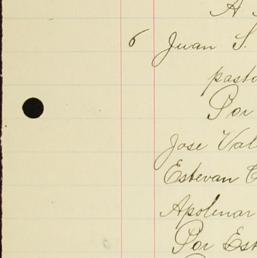 A
6 Juan S.
pasto
Por
Jose Val
Estevan
Apolinar
Por Est